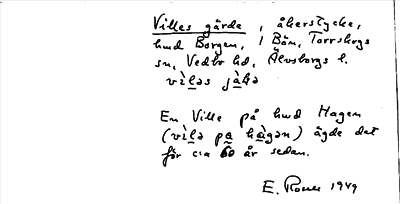 Villes gärde, åkerstycke,
hmd Borgen, i Bön, Torrskogs
sn, Vedbo hd, Älvsborgs l.
vìləs jàḷə
En Ville på hmd Hagen
(vìlə pa hàgən) ägde det
för c:a 60 år sedan.
E. 1949